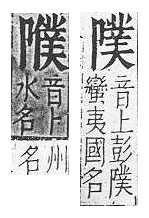 噗
音上彭噗
蠻夷國名
噗
音卜州
水名名